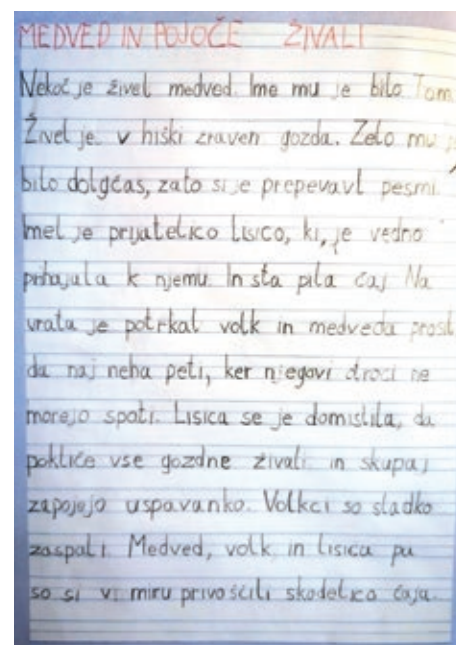 MEDVED IN POJOČE ŽIVALI
Nekoč je živel medved. Ime mu je bilo Tom.
Živel je v hiški zraven gozda. Zelo mu je
bilo dolgčas, zato si je prepevavl pesmi.
Imel je prijatelico lisico, ki, je vedno
prihajala k njemu. In sta pila čaj. Na
vrata je potrkal volk in medveda prosil
da naj neha peti, ker njegovi otroci ne
morejo spati. Lisica se je domislila, da
pokliče vse gozdne živali in skupaj
zapojejo uspavanko. Volkci so sladko
zaspali. Medved, volk in lisica pa
so si v miru privoščili skodelico čaja.